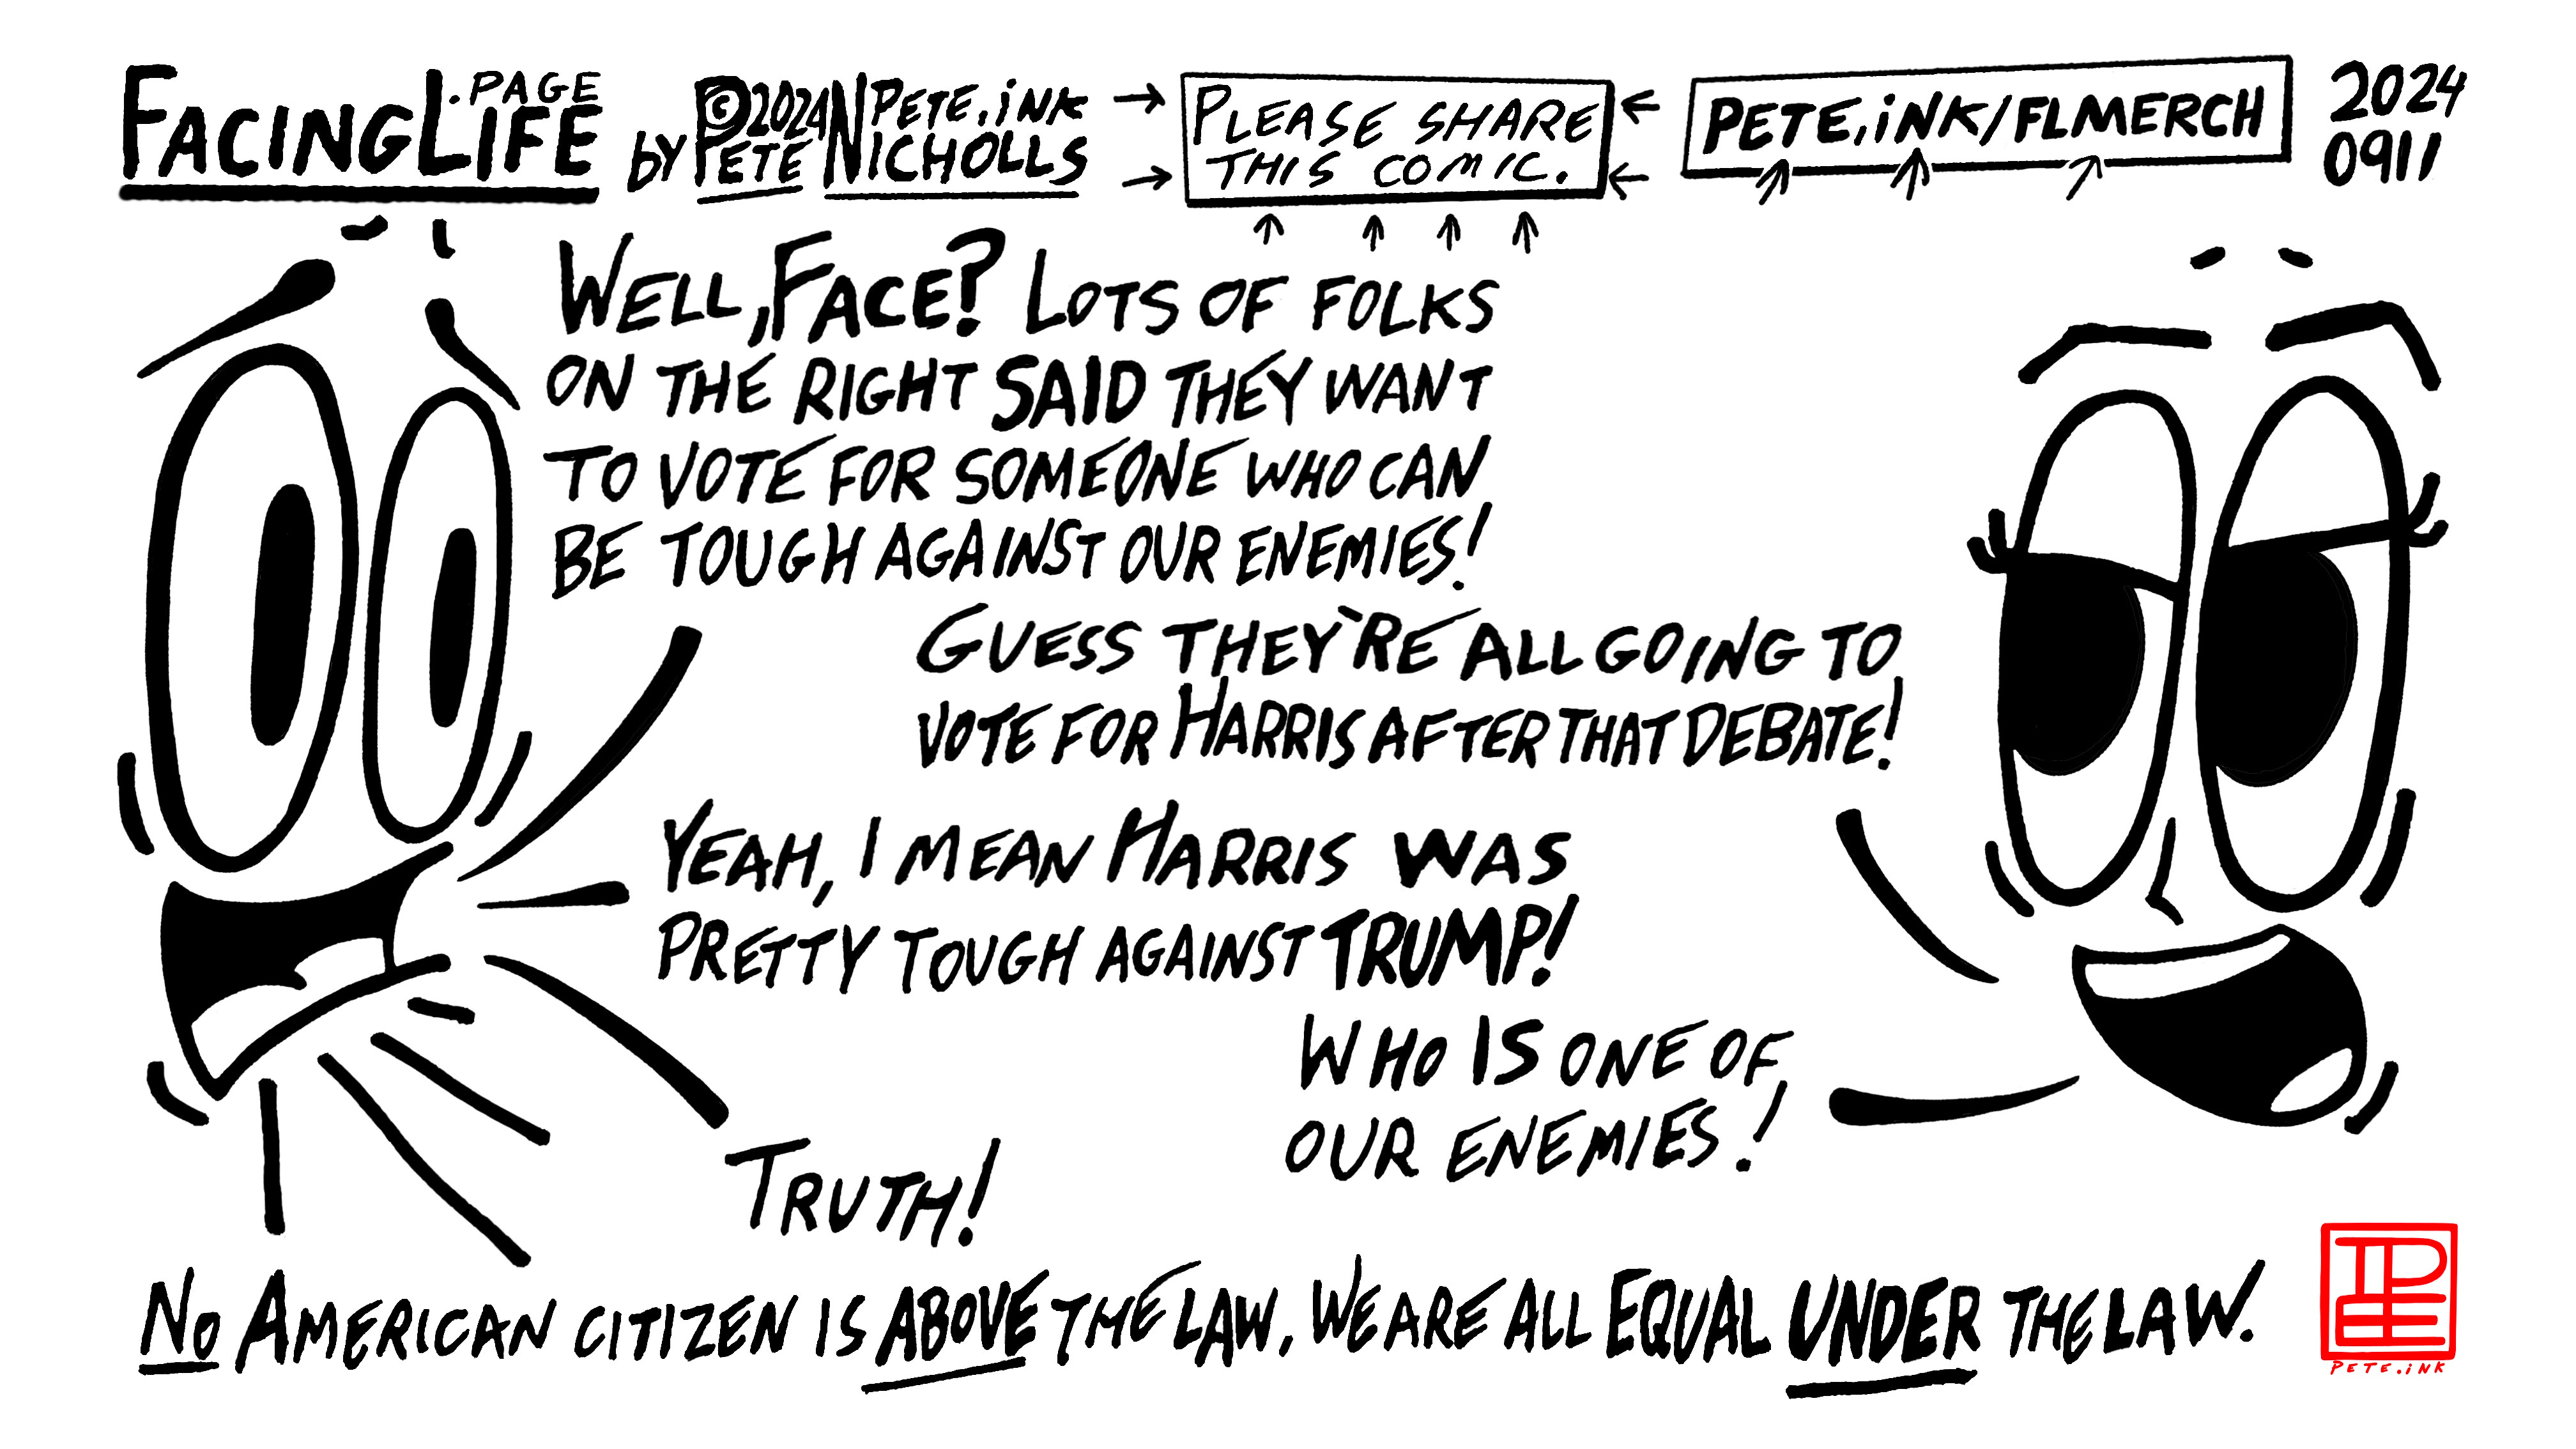 FACINGLIFE.PAGE
BY PETE NICHOLLS ©2024 PETE.INK
PLEASE SHARE
THIS COMIC.
PETE.INK/FLMERCH
2024
0911
WELL, FACE? LOTS OF FOLKS
ON THE RIGHT SAID THEY WANT
TO VOTE FOR SOMEONE WHO CAN
BE TOUGH AGAINST OUR ENEMIES!
GUESS THEY'RE ALL GOING TO
VOTE FOR HARRIS AFTER THAT DEBATE!
YEAH, I MEAN HARRIS WAS
PRETTY TOUGH AGAINST TRUMP!
WHO IS ONE OF
OUR ENEMIES!
TRUTH!
NO AMERICAN CITIZEN IS ABOVE THE LAW. WE ARE ALL EQUAL UNDER THE LAW.
PETE.INK